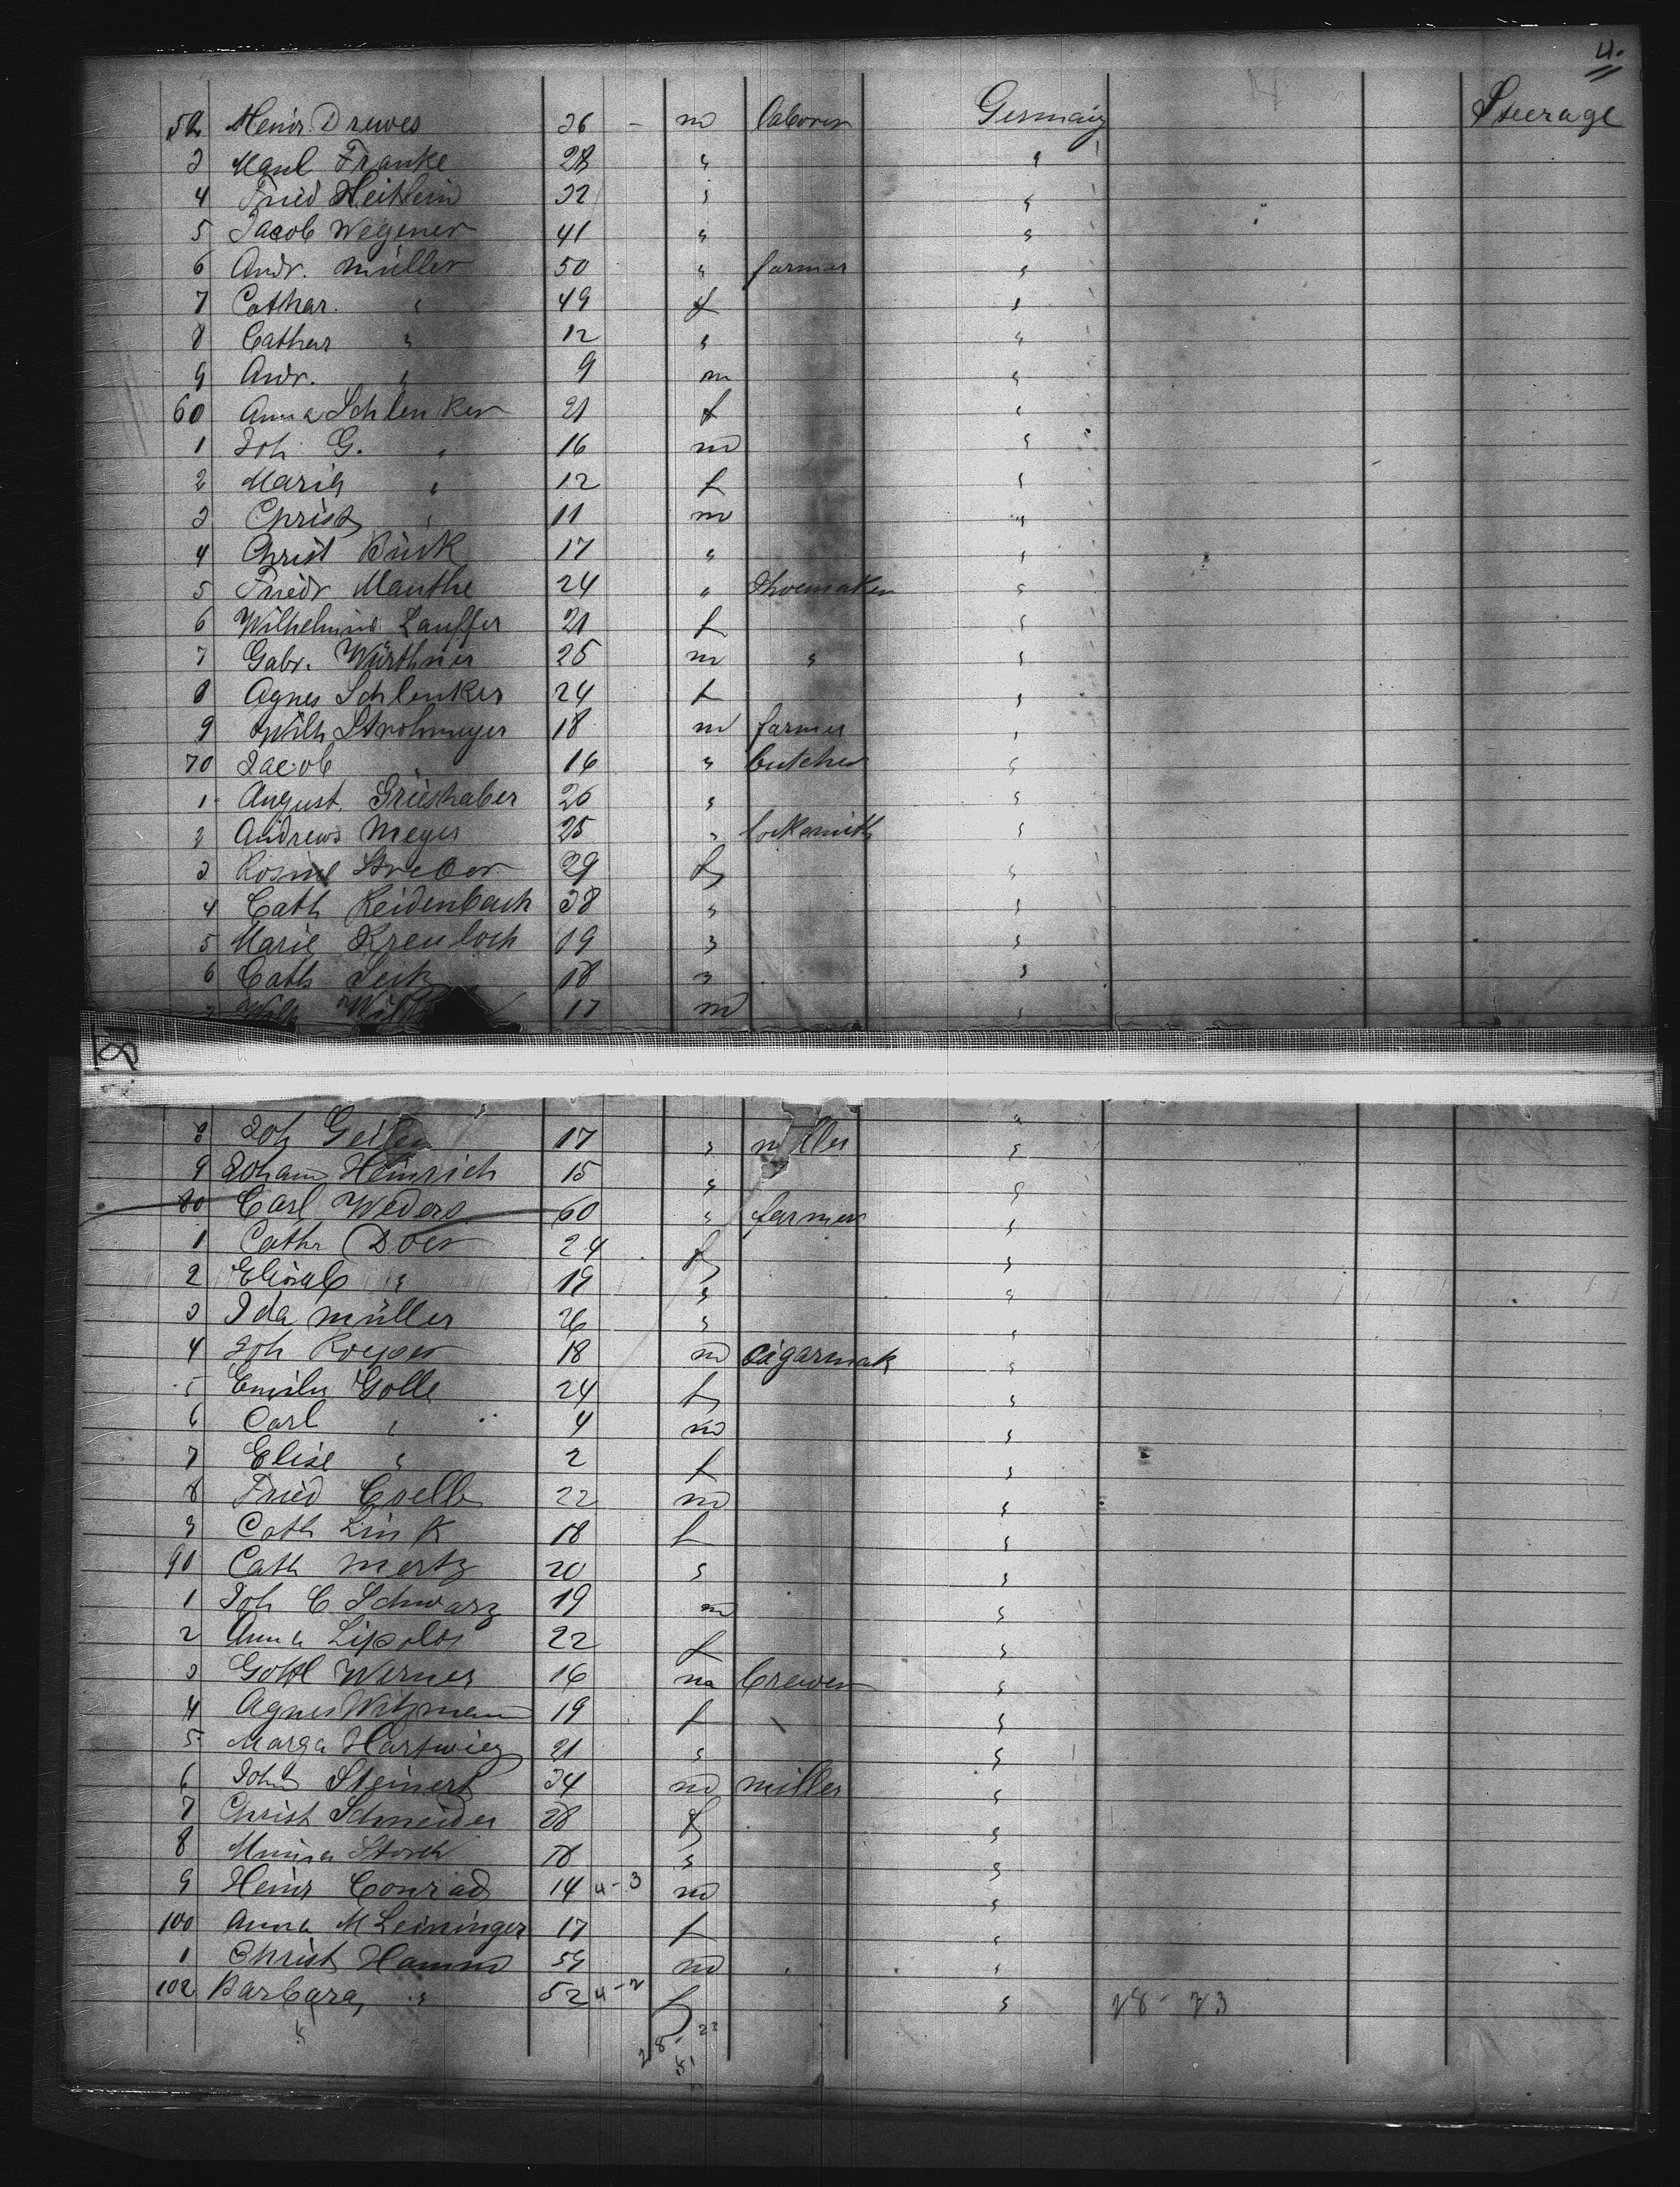 4.
52 Heinr Drewes 26 – m laborer Germany Steerage
3 Paul Franke 28 " "
4 Fried 32 " "
5 Jacob Wegener 41 " "
6 Andr. Müller 50 " farmer "
7 Cathar. " 49 f "
8 Cathar " 12 " "
9 Andr. " 9 m "
60 Anna Schlenker 21 f "
1 Joh. G. " 16 m "
2 Maria " 12 f "
3 Christ " 11 m "
4 Christ Bürk 17 " "
5 Friedr Manthe 24 " Shoemaker "
6 Wilhelmine Lauffer 21 f "
7 Gabr. Würthner 25 m " "
8 Agnes Schlenker 24 f "
9 Wilh Strohmeyer 18 m farmer "
70 Jacob 16 " butcher "
1 August. Grieshaber 26 " "
2 Andreas Meyer 25 " locksmith "
3 Rosine 29 f "
4 Cath Reidenbach 38 " "
5 Marie 19 " "
6 Cath Seitz 18 " "
7 17 m "
8 Joh 17 " miller "
9 Johann Heinrich 15 " "
80 Carl 60 " farmer "
1 Cathr Doer 24 f "
2 Elisab " 19 " "
3 Ida Müller 26 " "
4 Joh Roeper 18 m Cigarmak "
5 Emilie Golle 24 f "
6 Carl " 4 m "
7 Elise " 2 f "
8 Fried 22 m "
9 Cath Link 18 f "
90 Cath Mertz 20 " "
1 Joh C Schwarz 19 m "
2 Anna 22 f "
3 Gottl Werner 16 m brewer "
4 Agnes 19 f "
5 Marga Hartwieg 21 " "
6 John Steinert 34 m miller "
7 Christ Schneider 28 f "
8 Minna Storch 18 " "
9 Heinr Conrad 14 4-3 m "
100 Anna M Leininger 17 f "
1 Christ Hamm 54 m "
102 Barbara " 52 4-2 f " 28-23